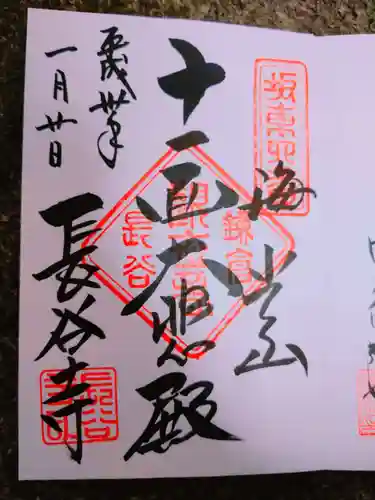 坂東四番
海光山
十一面大悲殿
鎌倉
長谷
平成卅年
一月廿日
長谷寺